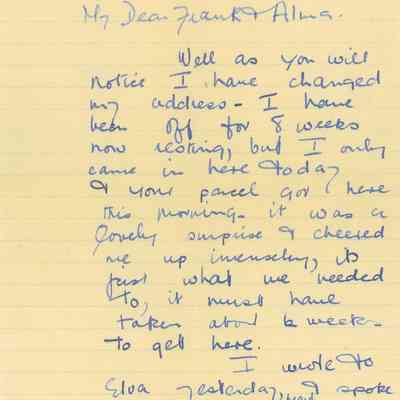 My Dear Frank & Alma.
Well as you will
notice I have changed
my address - I have
been off for 8 weeks
now resting, but I only
came in here today
& your parcel got here
this morning. it was a
lovely surprise & cheered
me up immensely, its
just what we needed
to, it must have
taken about 6 weeks
to get here.
I wrote to
Elva yesterday, & spoke